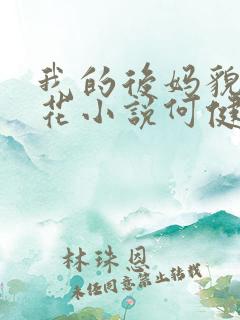 我的後妈貌
花小説何健
林珠恩
未经同意禁止转载